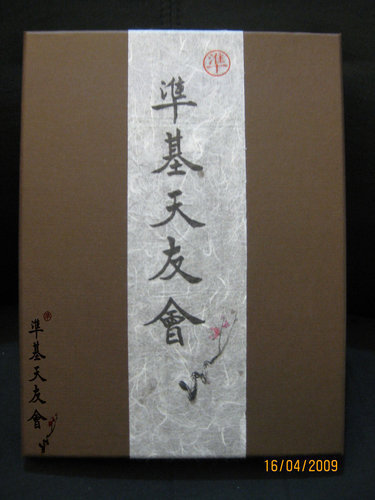 準
準基天友會
準
準基天友會
16/04/2009